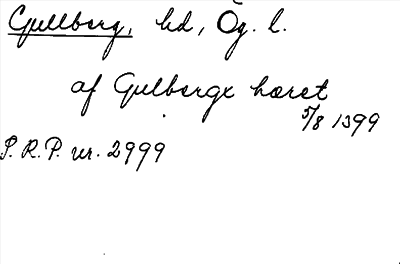 Gullberg, hd, Ög. l.
af Gulbergx hæret
5/8 1399
P. R. P. nr. 2999